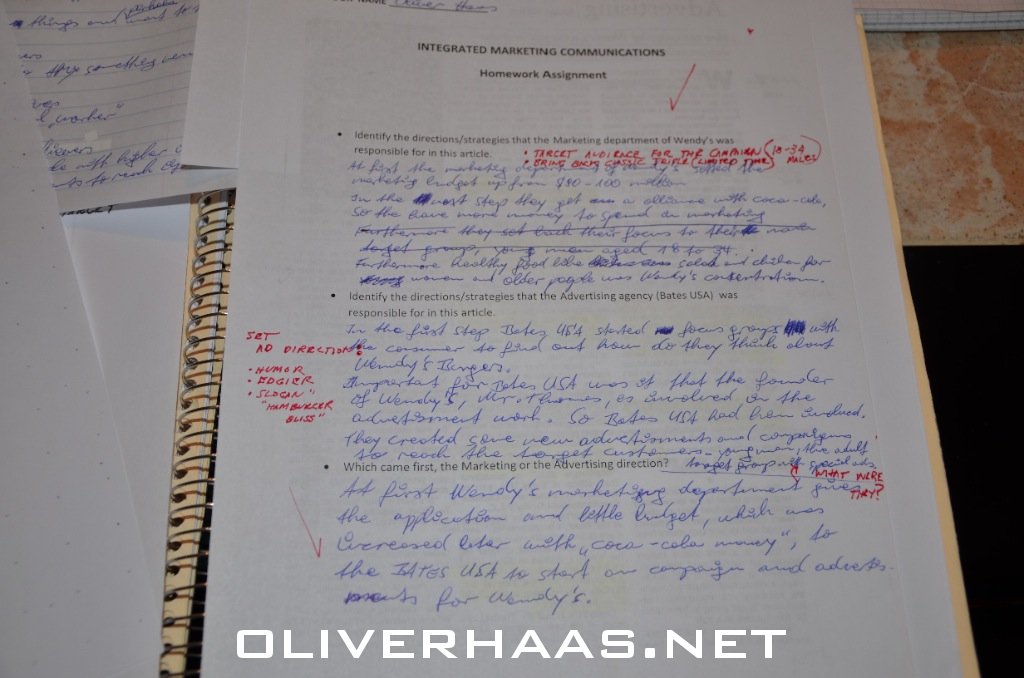 things and want to
try something new
"worker"
lievers
le with higher
NAME Oliver Haas
INTEGRATED MARKETING COMMUNICATIONS
Homework Assignment
• Identify the directions/strategies that the Marketing department of Wendy's was
responsible for in this article.
• TARGET AUDIENCE FOR THE CAMPAIGN (18-34 MALES)
• BRING BACK CLASSIC TRIPLE (LIMITED TIME)
At first the marketing department of Wendy's setted the
marketing budget up from $90-100 million
In the next step they get a alliance with coca-cola,
so the have more money to spend in marketing
Furthermore they set back their focus to their main
target groups, young men aged 18 to 34.
Furthermore healthy food like salad and chicken for
women and older people was Wendy's concentration.
• Identify the directions/strategies that the Advertising agency (Bates USA) was
responsible for in this article.
SET
AD DIRECTION:
• HUMOR
• EDGIER
• SLOGAN"
"HAMBURGER
BLISS"
In the first step Bates USA started focus groups with
the consumer to find out how do they think about
Wendy's Burgers.
Important for Bates USA was it that the founder
of Wendy's, Mr. Thomas, is involved in the
advertisment work. So Bates USA had him involved.
They created some new advertisments and campaigns
to reach the target customers. young man, the adult
target group with special ads
WHAT WERE
THEY?
• Which came first, the Marketing or the Advertising direction?
At first Wendy's marketing department gives
the application and little budget, which was
increased later with "coca-cola money", to
the BATES USA to start an campaign and adverts-
ments for Wendy's.
OLIVERHAAS.NET